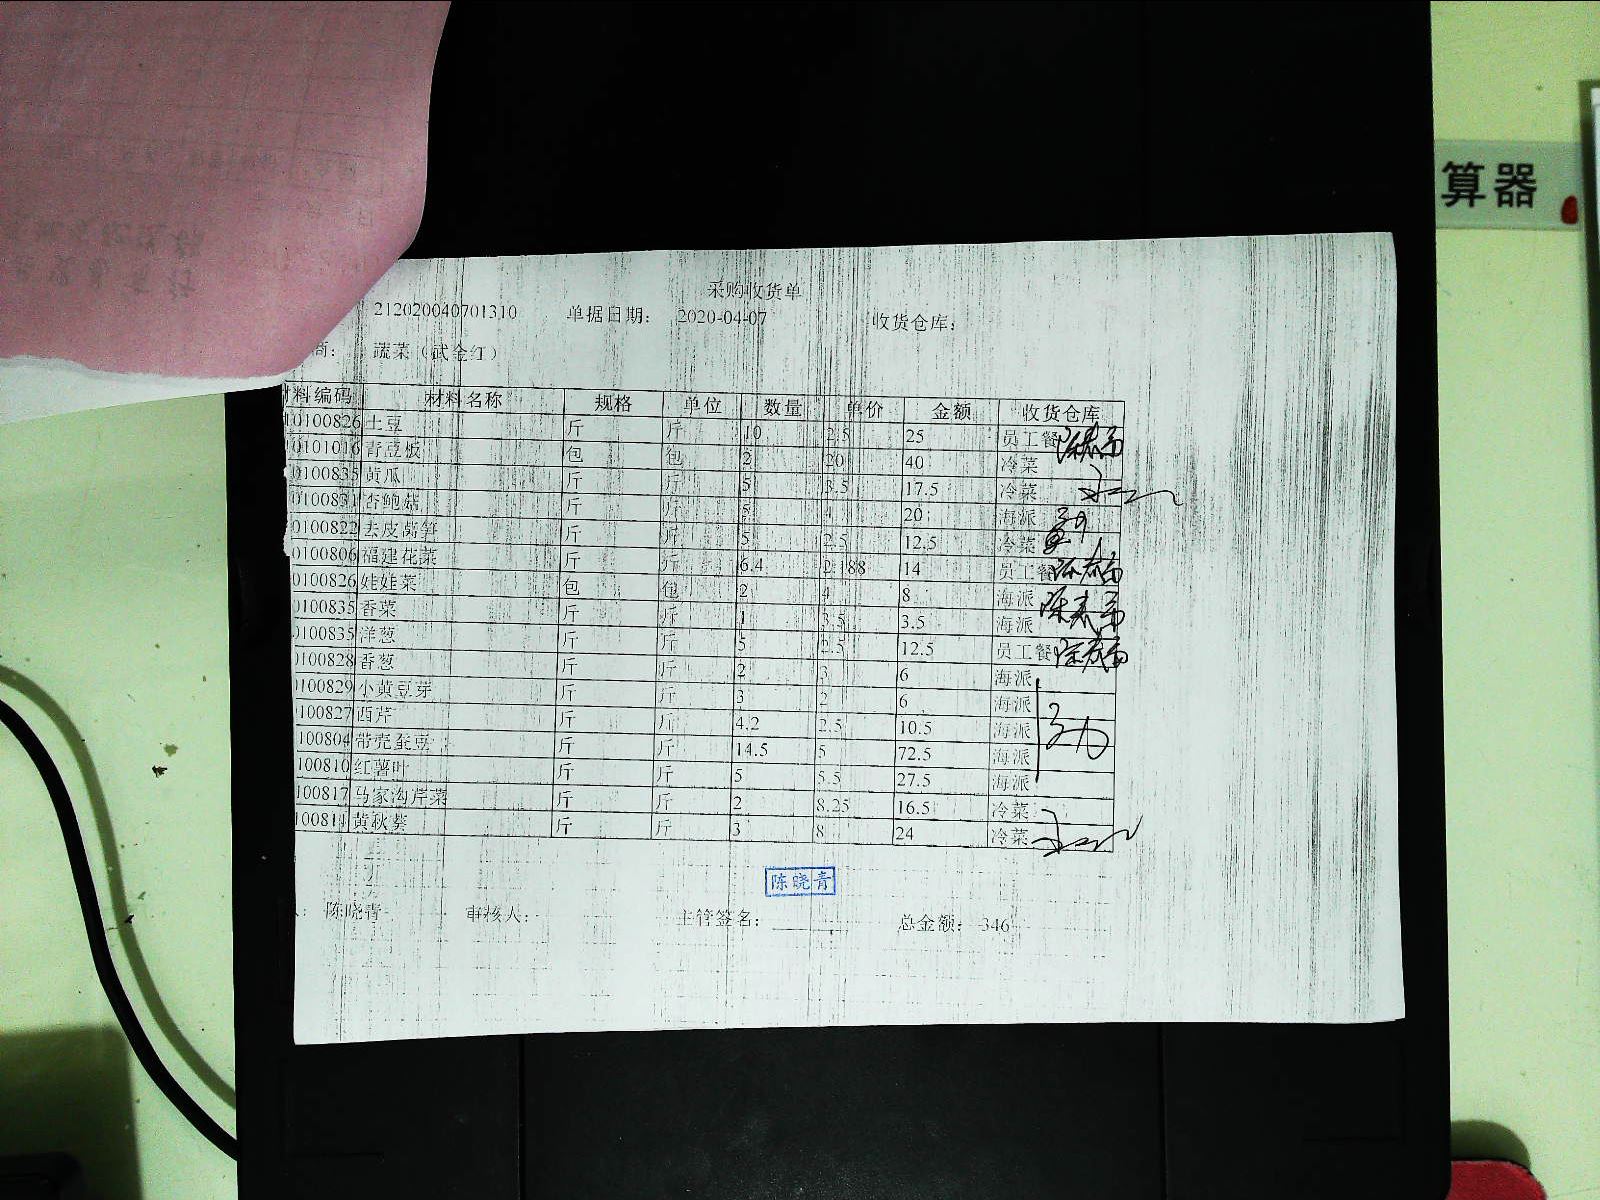 算器
采购收货单
212020040701310 单据日期: 2020-04-07 收货仓库:
商: 蔬菜（武金红）
材料编码 材料名称 规格 单位 数量 单价 金额 收货仓库
0100826 土豆 斤 斤 10 2.5 25 员工餐
0101016 青豆板 包 包 2 20 40 冷菜
0100835 黄瓜 斤 斤 5 3.5 17.5 冷菜
0100831 杏鲍菇 斤 斤 5 4 20 海派
0100822 去皮莴笋 斤 斤 5 2.5 12.5 冷菜
0100806 福建花菜 斤 斤 6.4 2.188 14 员工餐
0100826 娃娃菜 包 包 2 4 8 海派
0100835 香菜 斤 斤 1 3.5 3.5 海派
0100835 洋葱 斤 斤 5 2.5 12.5 员工餐
0100828 香葱 斤 斤 2 3 6 海派
0100829 小黄豆芽 斤 斤 3 2 6 海派
100827 西芹 斤 斤 4.2 2.5 10.5 海派
100804 带壳蚕豆 斤 斤 14.5 5 72.5 海派
100810 红薯叶 斤 斤 5 5.5 27.5 海派
100817 马家沟芹菜 斤 斤 2 8.25 16.5 冷菜
100811 黄秋葵 斤 斤 3 8 24 冷菜
陈晓青
人: 陈晓青 审核人: 主管签名: 总金额: 346